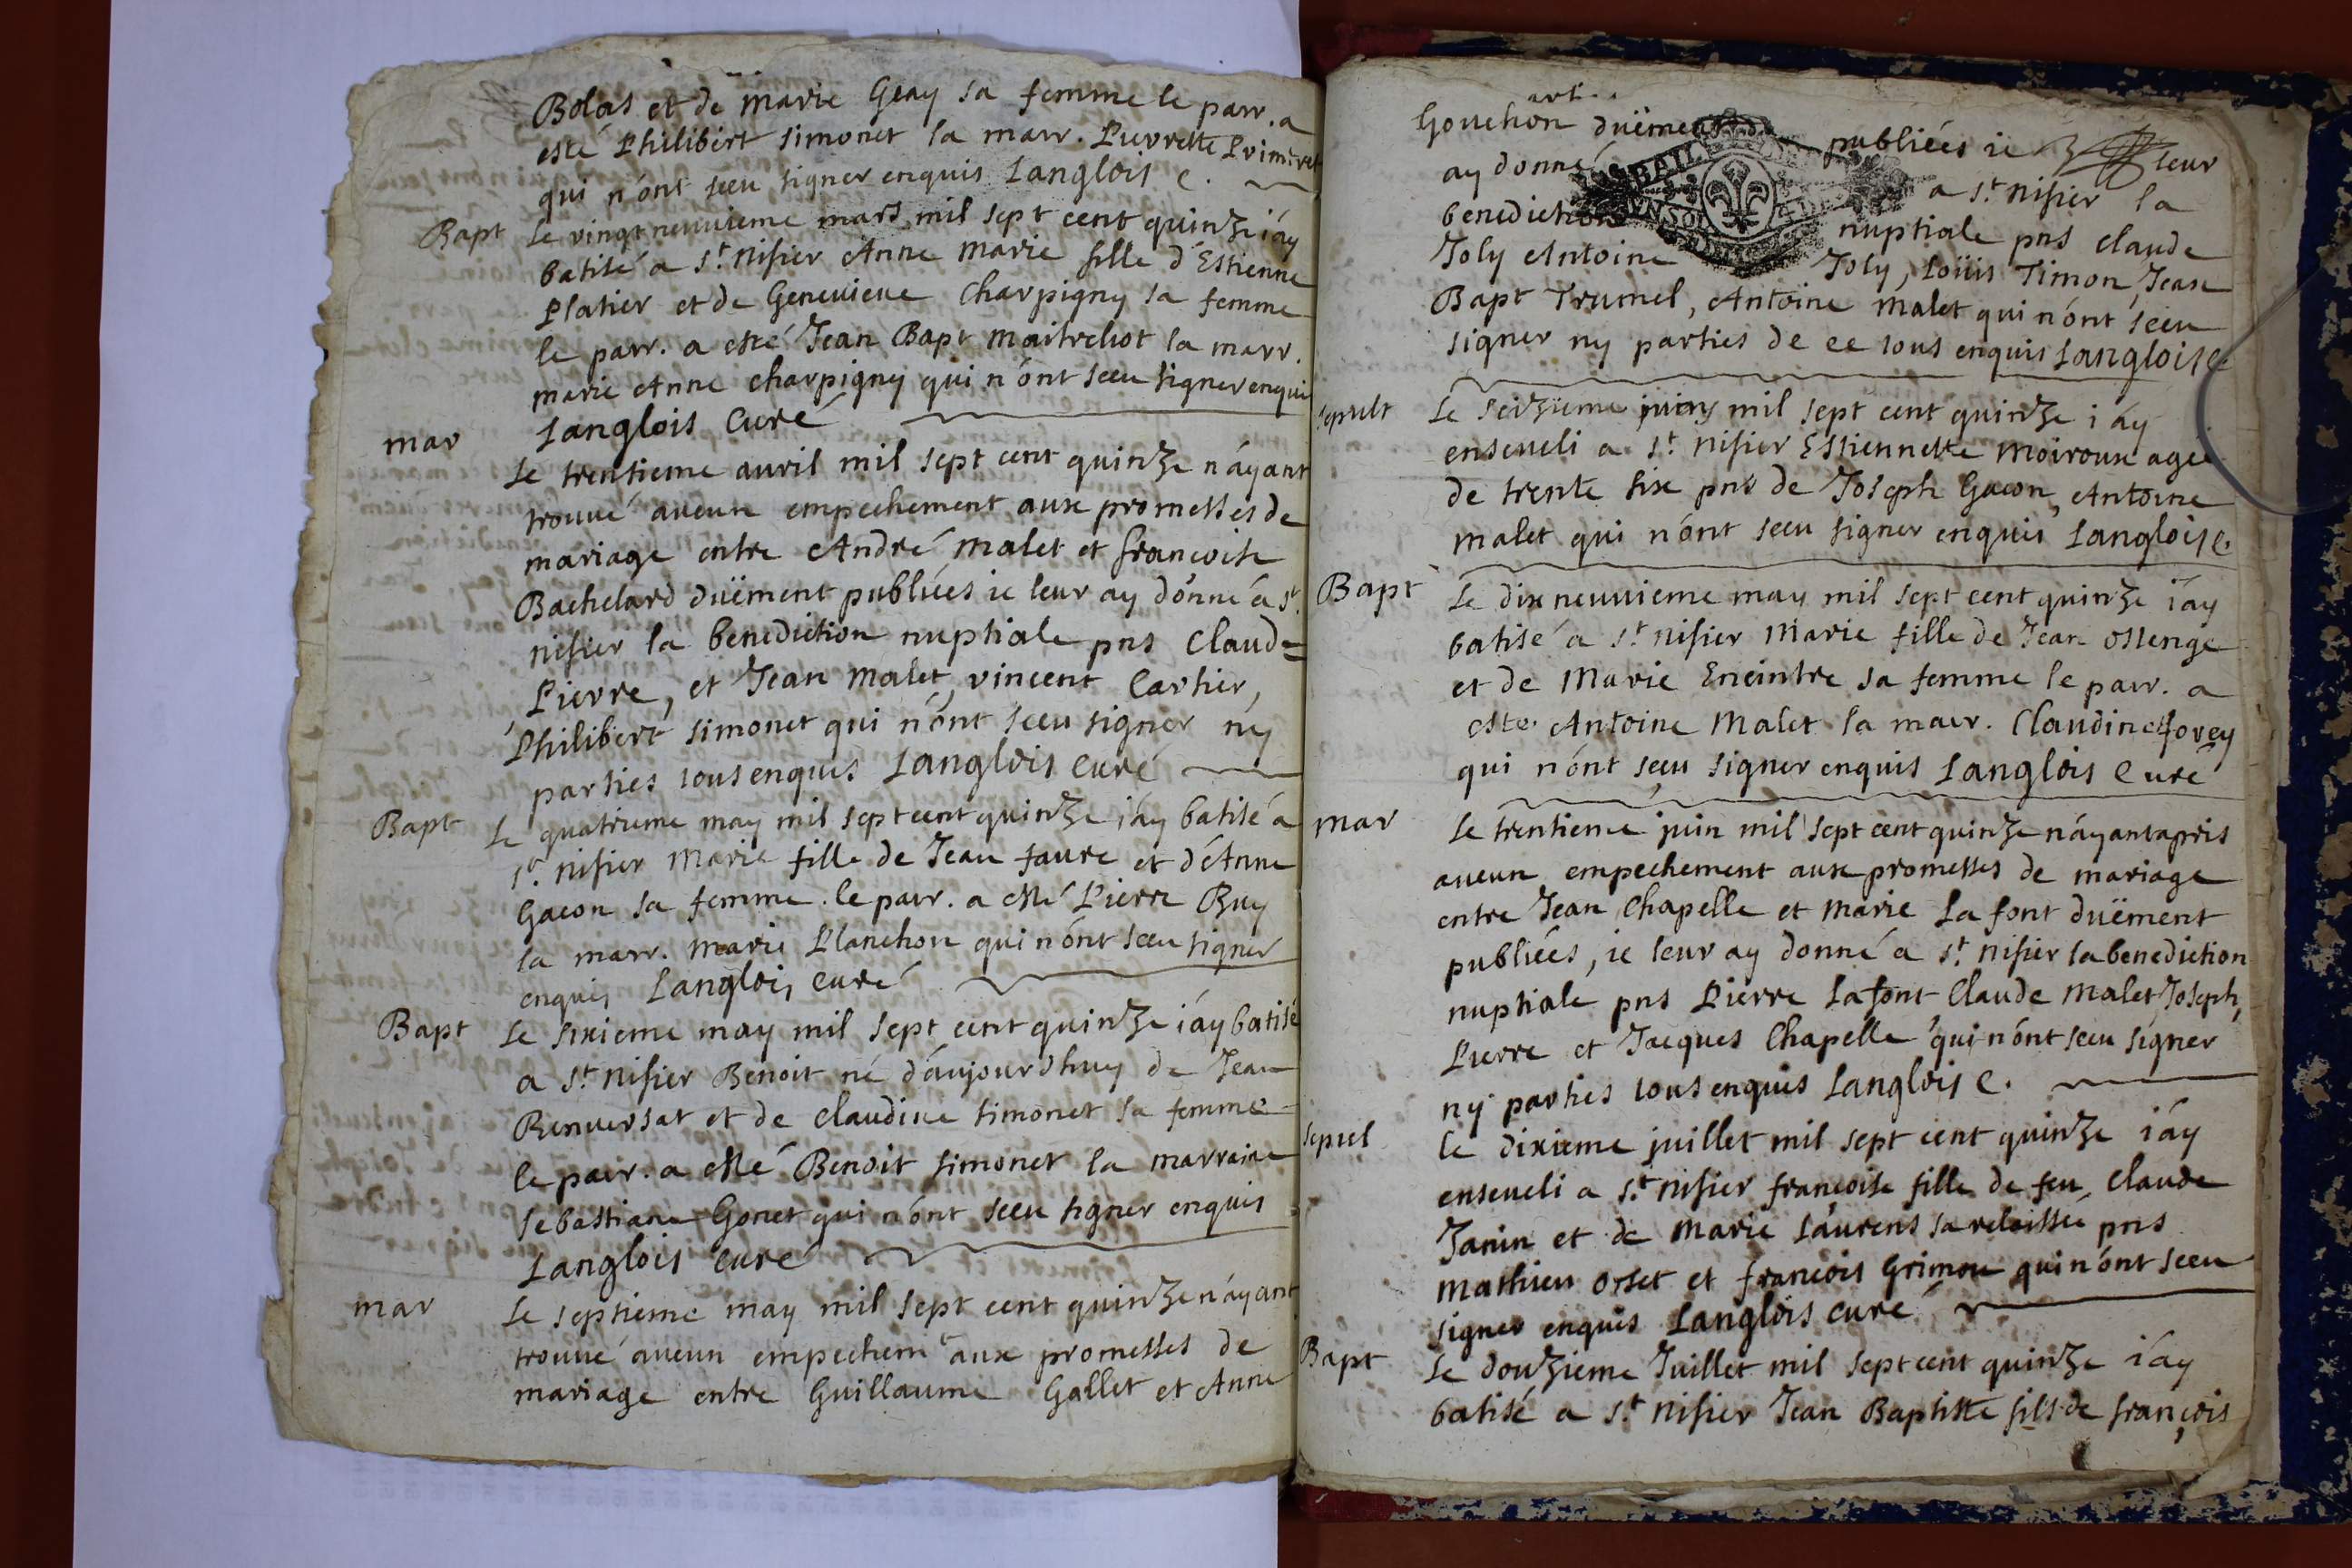 Bolas et de marie Geay sa femme le parr. a
esté Philibert Simonet la marr. Pierrette
qui n'ont sceu signer enquis Langlois c.
Bapt
Le vingt neuvieme mars mil sept cent quinze i'ay
batisé a St. Nisier Anne Marie fille d'Estienne
Platier et de Genevieve Charpigny sa femme
le parr. a esté Jean Bapt Maitrehot la marr.
marie Anne Charpigny qui n'ont sceu signer enquis
Langlois Curé
mar
Le trentieme auril mil sept cent quinze n'ayant
trouvé aucun empechement aux promesses de
mariage entre André Malet et francoise
Bachelard düement publiées ie leur ay donné a St.
nisier la benediction nuptiale pns Claude
Pierre, et Jean Malet, vincent Cartier,
Philibert Simonet qui n'ont sceu signer ny
parties sous enquis Langlois curé
Bapt
Le quatrieme may mil sept cent quinze i'ay batisé a
St. nisier Marie fille de Jean faure et d'Anne
Gacon sa femme. le parr. a esté Pierre Buy
la marr. Marie Planchon qui n'ont sceu signer
enquis Langlois curé
Bapt
Le sixieme may mil sept cent quinze i'ay batisé
a St. nisier Benoit né d'aujourd'huy de Jean
Renversat et de Claudine Simonet sa femme
le parr. a esté Benoit Simonet la marraine
Sebastiane Gonet qui n'ont sceu signer enquis
Langlois curé
mar
Le septieme may mil sept cent quinze n'ayant
trouvé aucun empechem aux promesses de
mariage entre Guillaume Gallet et Anne
Gouchon düement publiées ie leur
ay donné a St. nisier la
benediction nuptiale pns Claude
Joly Antoine Joly, Loüis Timon, Jean
Bapt Trumel, Antoine Malet qui n'ont sceu
signer ny parties de ce sous enquis Langlois c.
sepult
Le seizieme juin mil sept cent quinze i'ay
enseveli a St. nisier Estiennette Moiroux agée
de trente six pns de Joseph Gacon, Antoine
malet qui n'ont sceu signer enquis Langlois c.
Bapt
Le dix neuvieme may mil sept cent quinze i'ay
batisé a St nisier Marie fille de Jean Ossenge
et de Marie Enceintre sa femme le parr. a
esté Antoine Malet la marr. Claudine
qui n'ont sceu signer enquis Langlois curé
mar
Le trentieme juin mil sept cent quinze n'ayant apris
aucun empechement aux promesses de mariage
entre Jean Chapelle et marie La font duëment
publiées, ie leur ay donné a St. nisier la benediction
nuptiale pns Pierre Lafont Claude Malet Joseph,
Pierre et Jacques Chapelle qui n'ont sceu signer
ny parties sous enquis Langlois c.
sepul
le dixieme juillet mil sept cent quinze i'ay
enseveli a St. nisier francoise fille de feu Claude
Janin et de Marie Laurens sa relaissée pns
Mathieu Orset et francois Grimon qui n'ont sceu
signer enquis Langlois curé
Bapt
Le douzieme Juillet mil sept cent quinze i'ay
batisé a St. nisier Jean Baptiste fils de françois